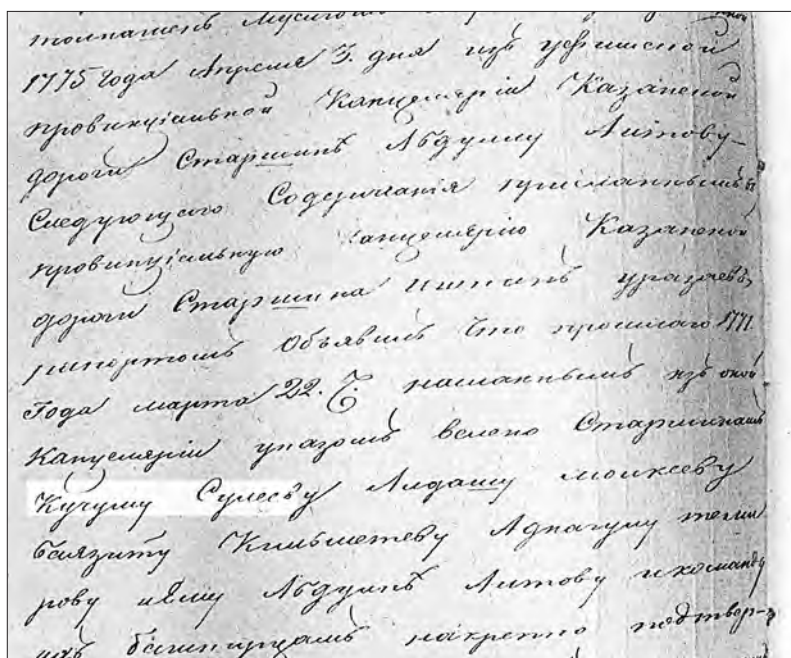 1775 года Апреля 3. дня изъ уфимской
провинціальной Канцеляріи Казанской
дороги Старшинѣ Абдулу Аитову
Следующаго Содержанія присланнымъ в
провинціальную канцелярію Казанской
дороги Старшина уразаевъ
рапортомъ Объявилъ Что прошлаго 1771.
Года марта 22. Ч. насланнымъ изъ оной
Канцеляріи указомъ велено Старшинамъ
Кучуму Сулееву Алдашу моиксеву
баязиту Кильметеву Аднагулу теми
рову иему Абдулѣ Аитову икоманды
ихъ башкирцамъ накрепко подтвер-